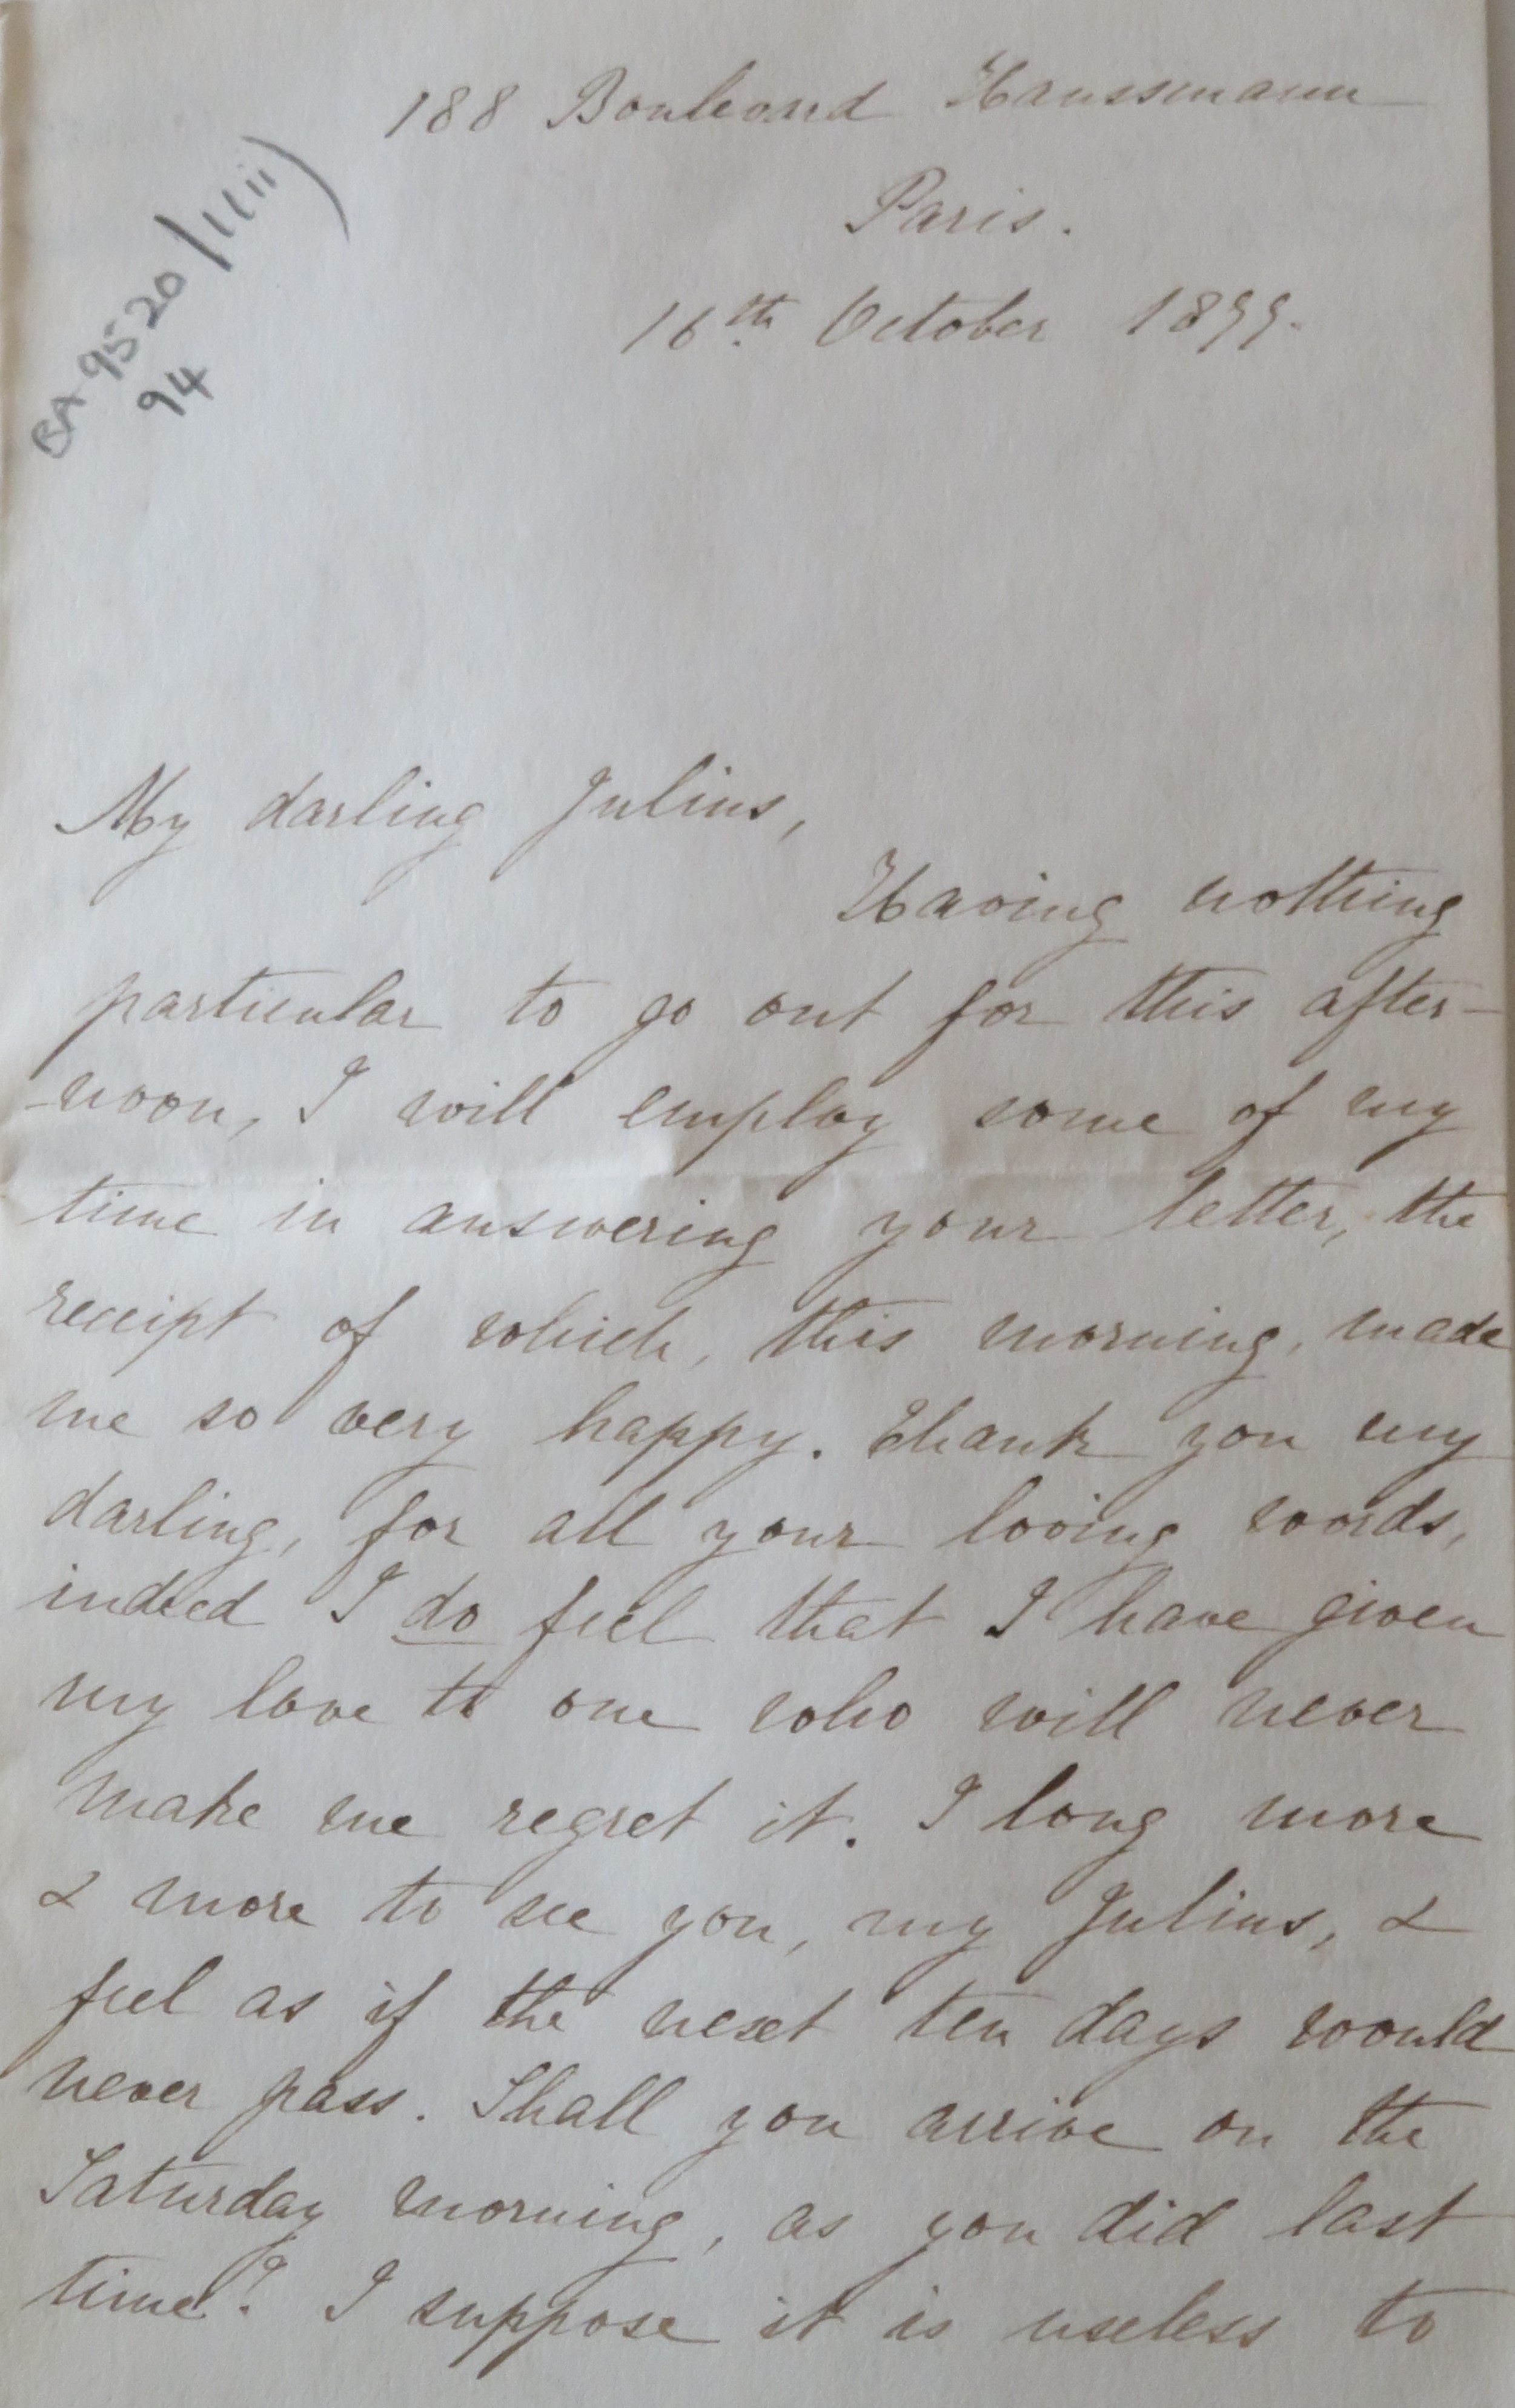 188 Boulevard Haussmann
Paris.
16th October 1899.
BA 9520/1(iii)
94
My darling Julius,
Having nothing
particular to go out for this after-
-noon, I will employ some of my
time in answering your letter, the
receipt of which, this morning, made
me so very happy. Thank you my
darling, for all your loving words,
indeed I do feel that I have given
my love to one who will never
make me regret it. I long more
& more to see you, my Julius, &
feel as if the next ten days would
never pass. Shall you arrive on the
Saturday morning, as you did last
time? I suppose it is useless to